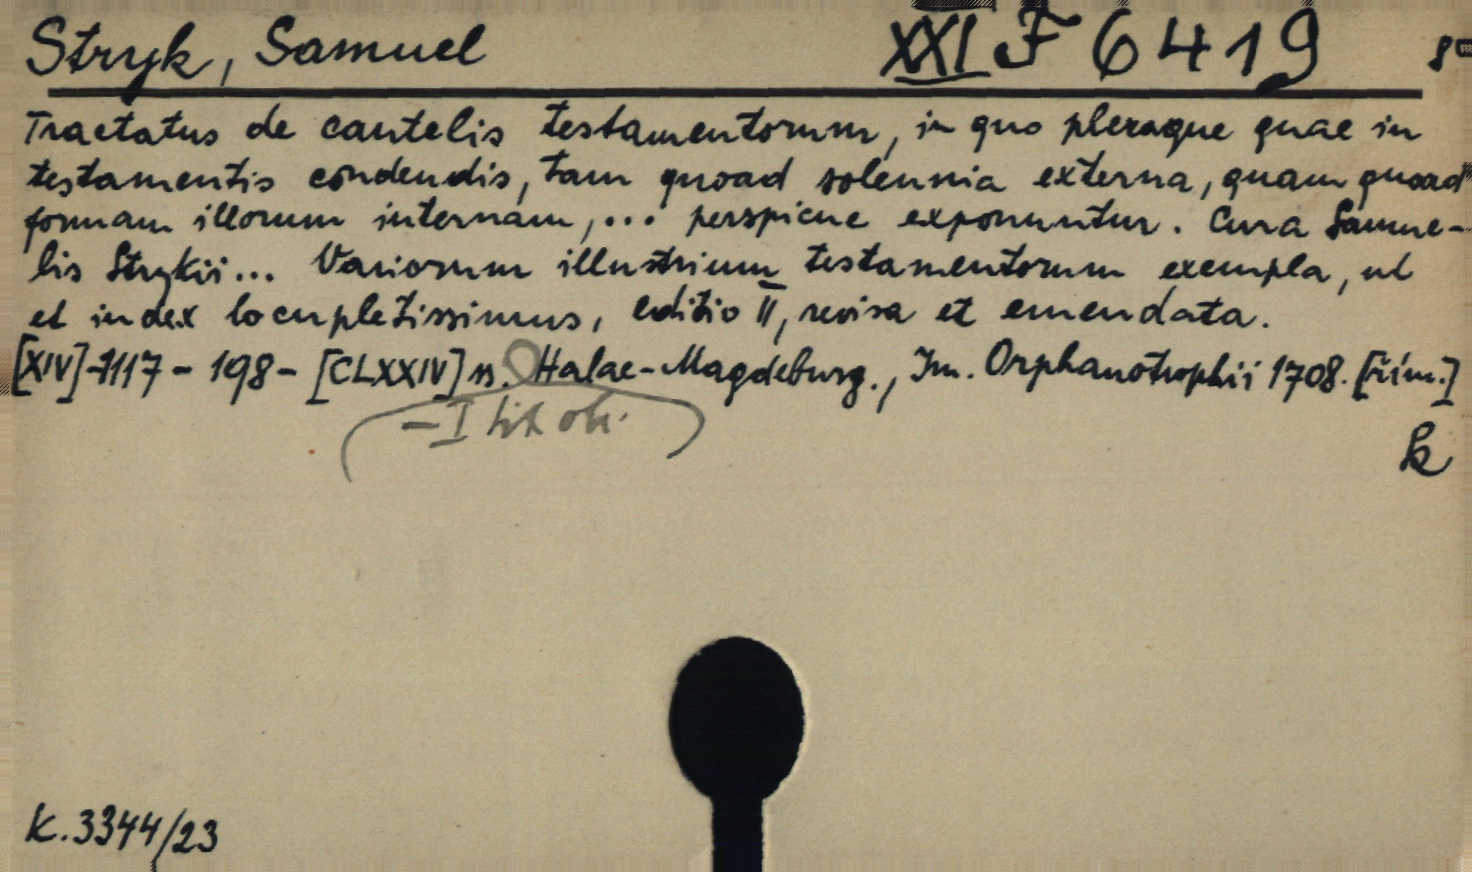 Stryk, Samuel XXI F 6419 8°
Tractatus de cautelis testamentorum, in quo pleraque quae in
testamentis condendis, tam quoad solennia externa, quam quoad
formam illorum internam, ... perspicue exponuntur. Cura Samue-
lis Strykii... Variorum illustrium testamentorum exempla, ut
et index locupletissimus, editio II, revisa et emendata.
[XIV]-1117-198-[CLXXIV] s. Halae-Magdeburg., Im. Orphanotrophii 1708. [řím.]
- I tit. obr.
k
K.3344/23